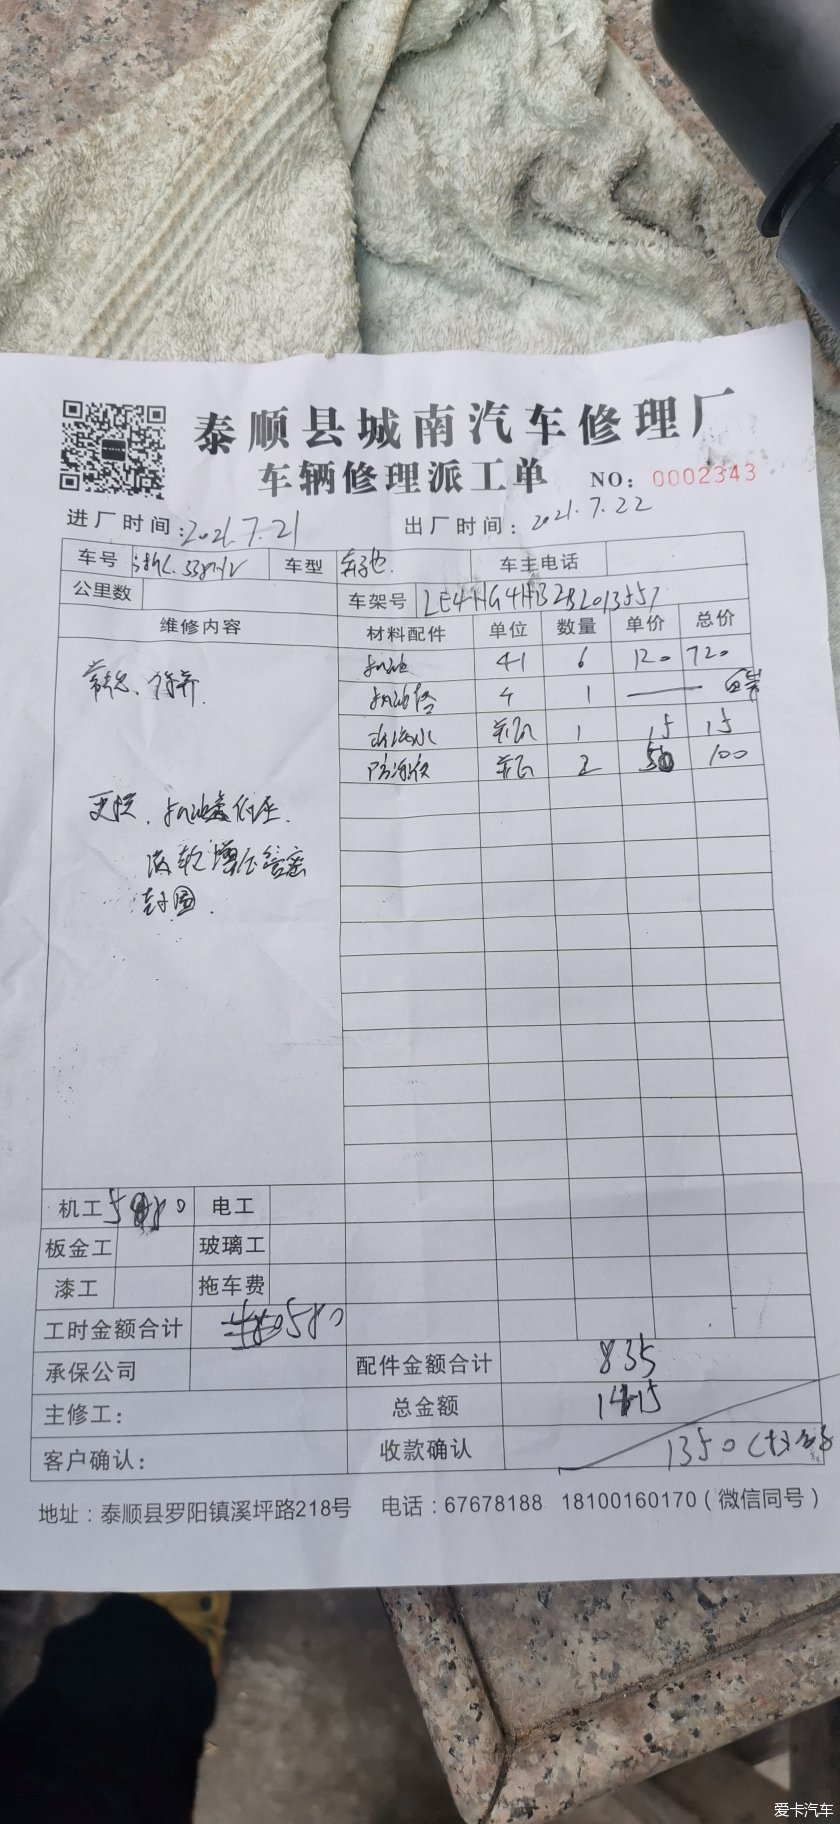 泰顺县城南汽车修理厂
车辆修理派工单 NO：0002343
进厂时间：2021.7.21 出厂时间：2021.7.22
车号 车型 奔驰. 车主电话
公里数 车架号
维修内容 材料配件 单位 数量 单价 总价
常规. 保养. 机油 4L 6 120 720
机油格 个 1 — 自带
玻璃水 瓶 1 15 15
防冻液 瓶 2 50 100
更换. 机油
涡轮增压管密
封圈.
机工 580 电工
板金工 玻璃工
漆工 拖车费
工时金额合计 580
承保公司 配件金额合计 835
主修工： 总金额 1415
客户确认： 收款确认 1350
地址：泰顺县罗阳镇溪坪路218号 电话：67678188 18100160170（微信同号）
爱卡汽车